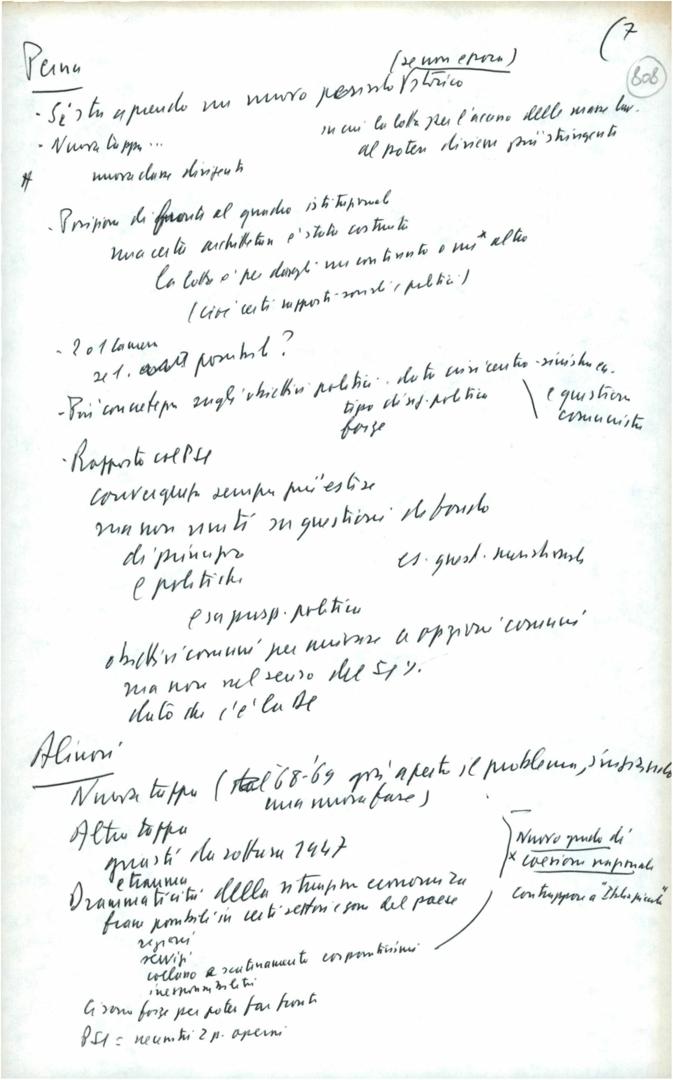 (7
808
Perna
(se non epoca)
- Si sta aprendo un nuovo periodo storico
in cui la lotta per l'accesso delle masse lav.
al potere diviene più stringente
- Nuova tappa ...
nuova classe dirigente
- Posizione di fronte al quadro istituzionale
una certa architettura è stata costruita
la lotta è per dargli un contenuto o un altro
(cioè certi rapporti sociali e politici)
- 2 o 1 Camera
se 1. possibile?
- Più concretezza sugli obiettivi politici. data crisi centro-sinistra
tipo di politica
forze
e questione
comunista
- Rapporto col PSI
convergenza sempre più estese
ma non unità su questioni di fondo
di principio
e politiche
es. quest. 
e su prosp. politica
obiettivi comuni per arrivare a opzioni comuni
ma non nel senso del 51%.
dato che c'è la DC
Alinovi
Nuova tappa ('68-'69 già aperto il problema, iniziando
una nuova fase)
Altra tappa
guasti da rottura 1947
e trauma
Drammaticità della situazione economica
frane possibili in certi settori e zone del paese
regioni
servizi
crollano a scatenamento corporativismi
Nuovo grado di
coesione nazionale
contrapporre a
Ci sono forze per poter far fronte
PSI = 2 p. operai